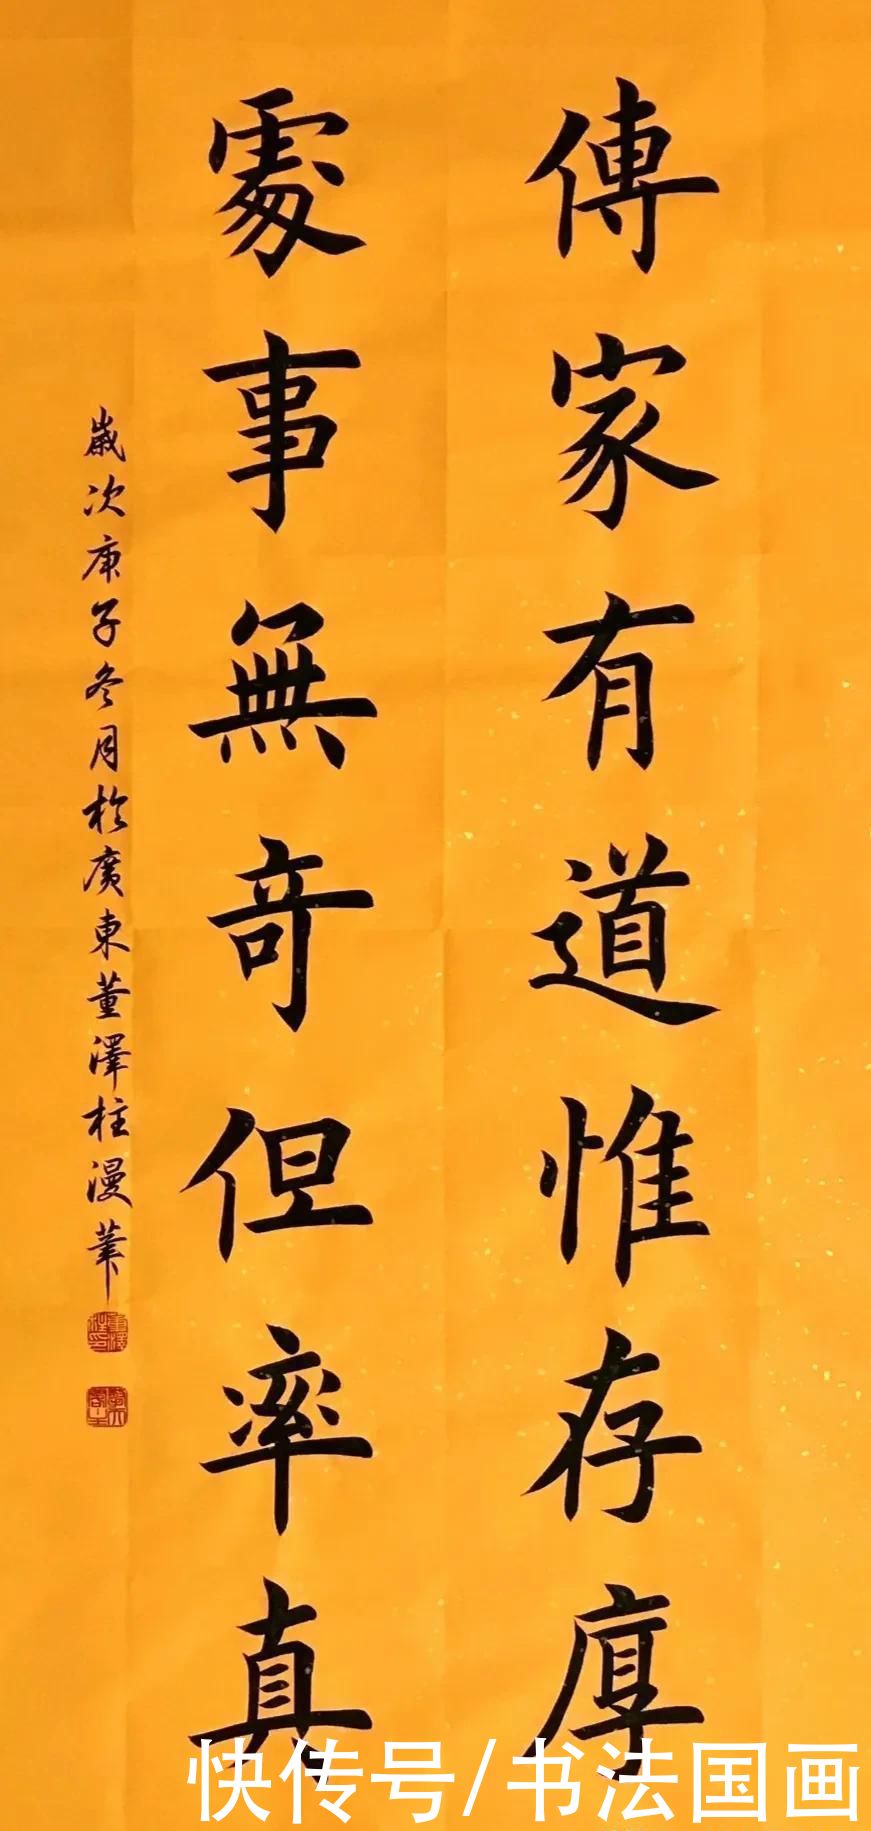 傳家有道惟存厚
處事無奇但率真
歲次庚子冬月於廣東董澤柱漫筆
快传号/书法国画